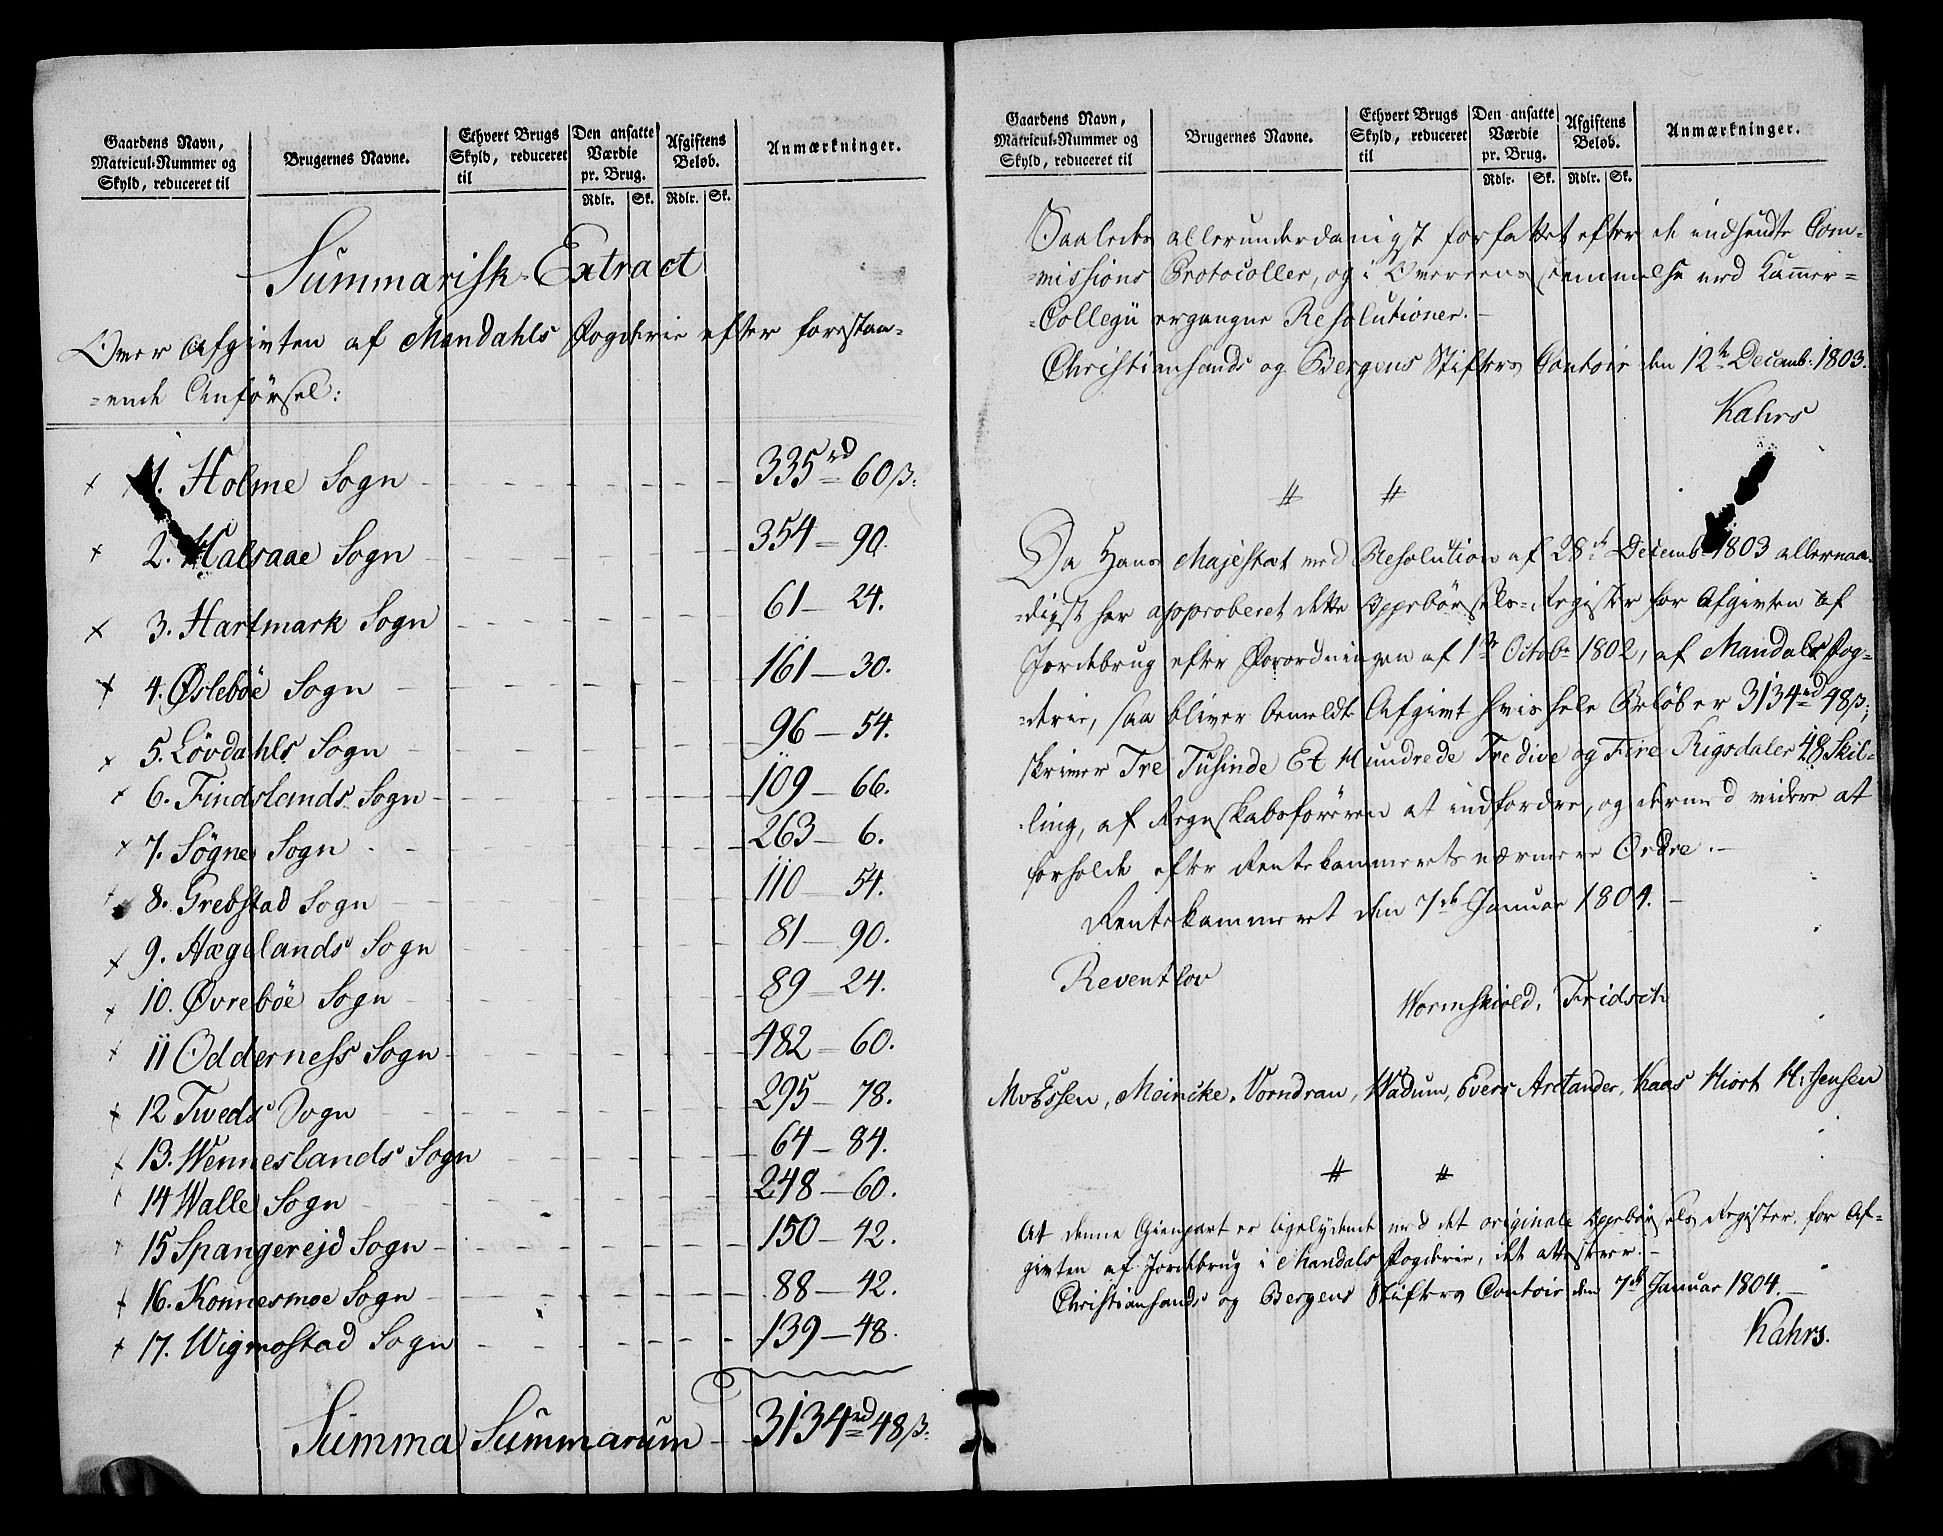 Gaardens Navn,
Matricul-Nummer og
Skyld, reduceret til
Brugernes Navne.
Ethvert Brugs
Skyld, reduceret
til
Den ansatte
Værdie
pr. Brug.
Rdlr. Sk.
Afgiftens
Beløb.
Rdlr. Sk.
Anmærkninger.
Summarisk Extract
Over Afgivten af Mandahls Fogderie efter forestaa-
=ende Anførsel:
1. Holme Sogn 335rd 60ß.
2. Halsaae Sogn 354 - 90.
3. Hartmark Sogn 61 - 24.
4. Øslebøe Sogn 161 - 30.
5. Lövdahls Sogn 96 - 54.
6. Findslands Sogn 109 - 66.
7. Sögne Sogn 263 - 6.
8. Grebstad Sogn 110 - 54.
9. Hægelands Sogn 81 - 90.
10. Øvrebøe Sogn 89 - 24.
11 Odderness Sogn 482 - 60.
12 Tweds Sogn 295 - 78.
13. Wenneslands Sogn 64 - 84.
14 Walle Sogn 248 - 60.
15 Spangerejd Sogn 150 - 42.
16. Konnesmoe Sogn 88 - 42.
17. Wigmostad Sogn 139 - 48.
Summa Summarum 3134rd 48ß.
Gaardens Navn,
Matricul-Nummer og
Skyld, reduceret til
Brugernes Navne.
Ethvert Brugs
Skyld, reduceret
til
Den ansatte
Værdie
pr. Brug.
Rdlr. Sk.
Afgiftens
Beløb.
Rdlr. Sk.
Anmærkninger.
Saaledes allerunderdanigst forfattet efter de indsendte Com-
=missions Protocoller, og i Overeensstemmelse med Kammer=
=Collegii ergangne Resolutioner.-
Christiansands og Bergens Stifters Contoir den 12te Decemb: 1803.
Kahrs
# #
Da Hans Majestæt ved Resolution af 28de Decemb. 1803 allernaa-
=digst har approberet dette Oppebørsels-Register for Afgivten af
Jordebrug efter Forordningen af 1ste Octobr 1802, af Mandals Fog-
=derie, saa bliver bemeldte Afgivt hvis hele Beløb er 3134rd 48ß;
skriver Tre Tusinde Et Hundrede Tredive og Fire Rigsdaler 48 Skil-
=ling, af Regnskabsføreren at indfordre, og dermed videre at
forholde efter Rentekammerets nærmere Ordre.-
Rentekammeret den 7de Januar 1804.-
Reventlov
Wormskiold. Fridsch
MvEssen, Meincke. Vorndran, Wadum, Evers Arctander. Kaas Hiort H: Jensen
# #
At denne Gienpart er ligelydende med det originale Oppebørsels Register for Af-
givten af Jordebrug i Mandals Fogderie, det attesterer.-
Christiansands og Bergens Stifters Contoir den 7de Januar 1804.-
Kahrs.